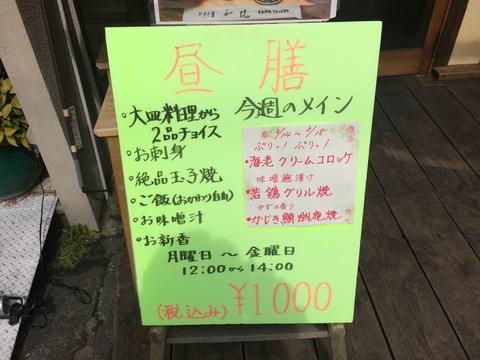 昼膳
・大皿料理から
2品チョイス
・お刺身
・絶品玉子焼
・ご飯(おかわり自由)
・お味噌汁
・お新香
今週のメイン
9/14〜9/18
ぷりっ! ぷりっ!
・海老クリームコロッケ
味噌麹漬け
・若鶏グリル焼
ゆずの香り
・かじき鮪幽庵焼
月曜日〜金曜日
12:00から14:00
(税込み)¥1000